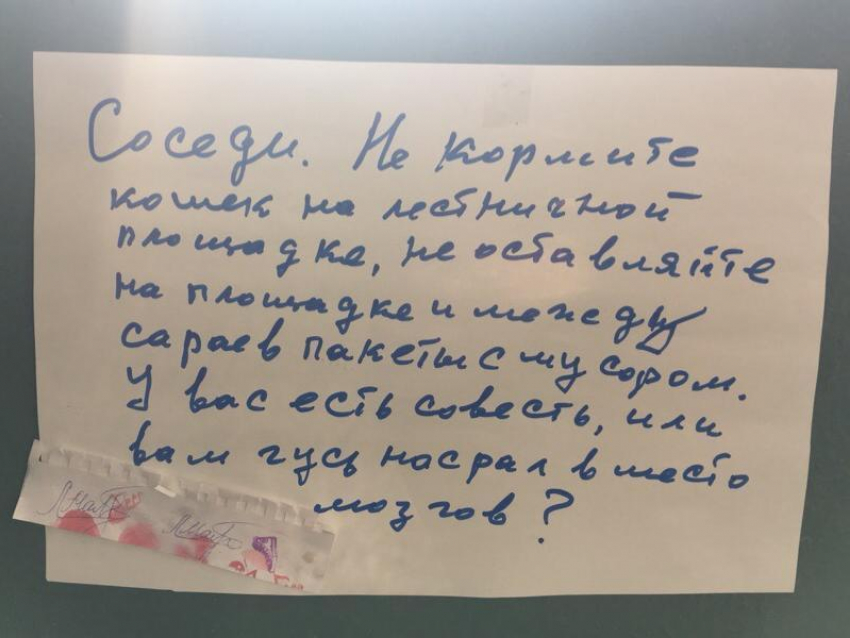 Соседи. Не кормите
кошек на лестничной
площадке, не оставляйте
на площадке и между
сараев пакеты с мусором.
У вас есть совесть, или
вам гусь насрал вместо
мозгов?